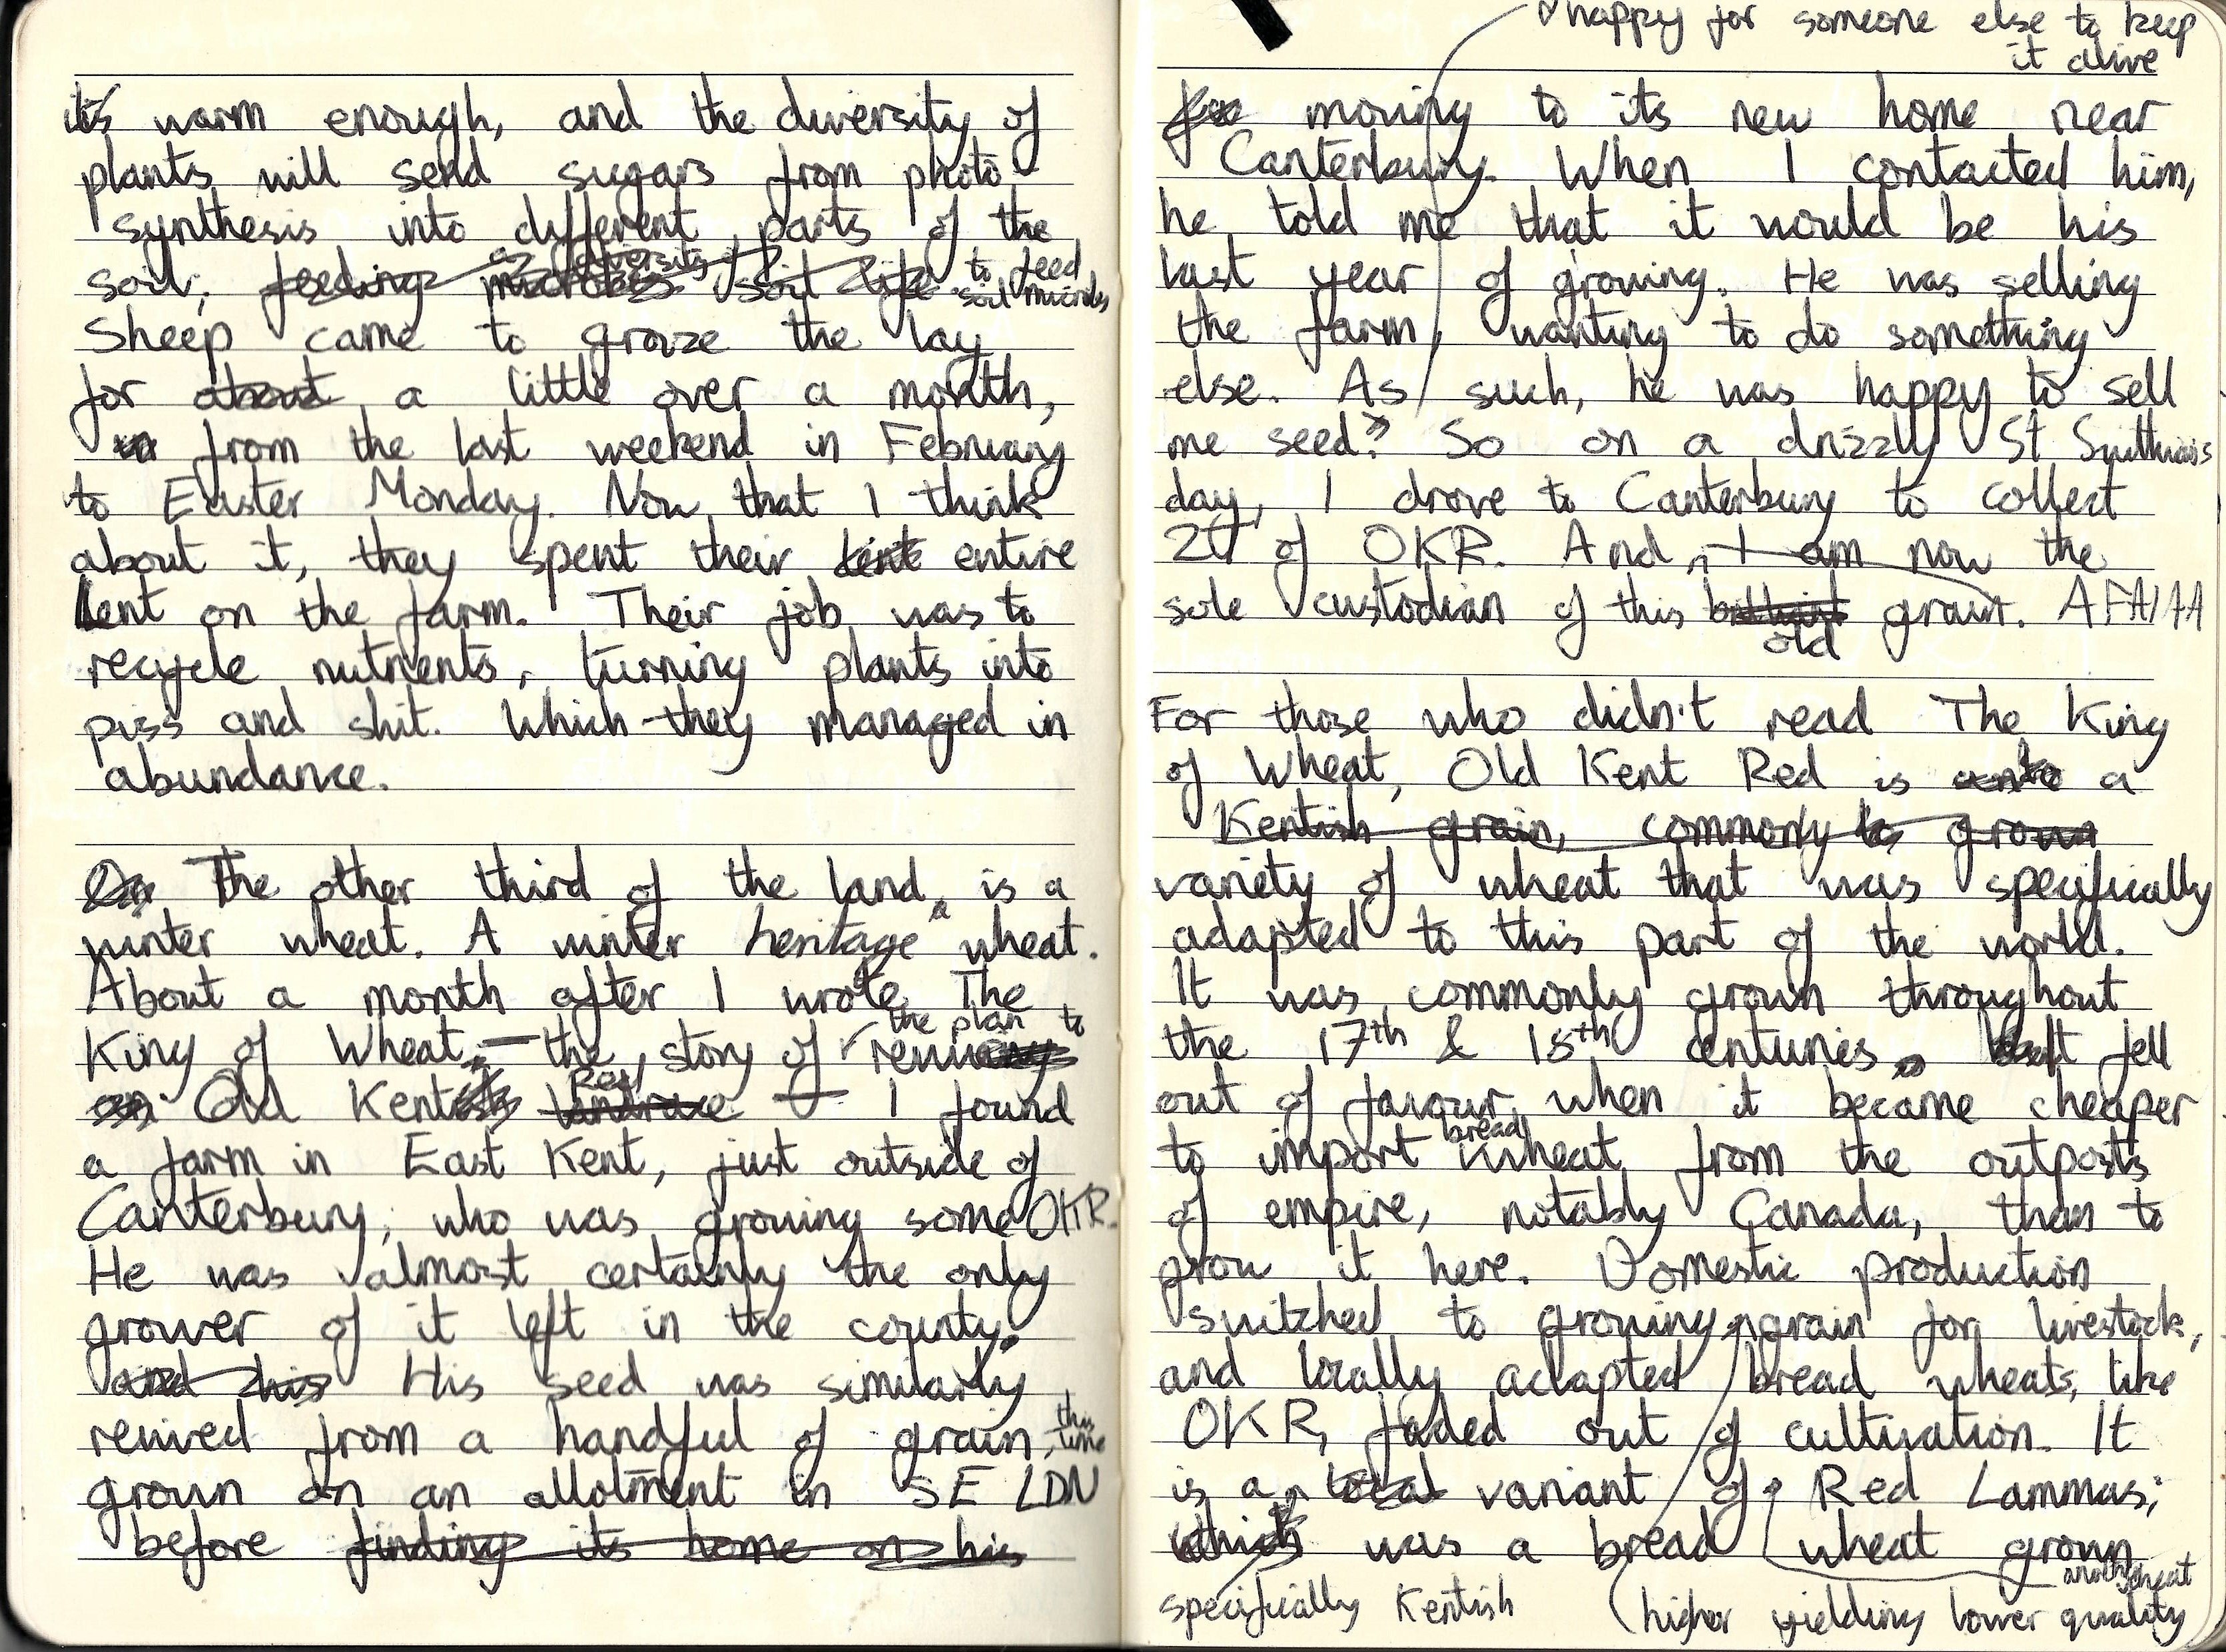 it's warm enough, and the diversity of
plants will send sugars from photo
synthesis into different parts of the
a diversity of
soil, feeding microbes soil life to feed
soil microbes
Sheep came to graze the lay
for about a little over a month,
in from the last weekend in February
to Easter Monday. Now that I think
about it, they spent their lent entire
lent on the farm. Their job was to
recycle nutrients, turning plants into
piss and shit. Which they managed in
abundance.
On The other third of the land is a
winter wheat. A winter heritage wheat.
About a month after I wrote The
the plan to
King of Wheat, – the story of reviving
Red
an Old Kentish landrace – I found
a farm in East Kent, just outside of
Canterbury, who was growing some OKR.
He was almost certainly the only
grower of it left in the county.
and his His seed was similarly
revived from a handful of grain, this
time
grown on an allotment in SE LDN
before finding its home on his
happy for someone else to keep
it alive
for moving to its new home near
Canterbury. When I contacted him,
he told me that it would be his
last year of growing. He was selling
the farm, wanting to do something
else. As such, he was happy to sell
me seed. So on a drizzly St Swithins
day, I drove to Canterbury to collect
2T of OKR. And, I am now the
sole custodian of this grain. AFAIAA
old
For those who didn't read The King
of Wheat, Old Kent Red is a
Kentish grain, commonly grown
variety of wheat that was specifically
adapted to this part of the world.
It was commonly grown throughout
the 17th & 18th centuries, but fell
out of favour when it became cheaper
bread
to import wheat from the outposts
of empire, notably Canada, than to
grow it here. Domestic production
switched to growing grain for livestock,
and locally adapted bread wheats, like
OKR, faded out of cultivation. It
is a local variant of Red Lammas;
which was a bread wheat grown
another wheat
specifically Kentish (higher yielding lower quality